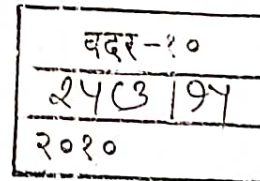 बदर-१०
२५८३ | १५
२०१०